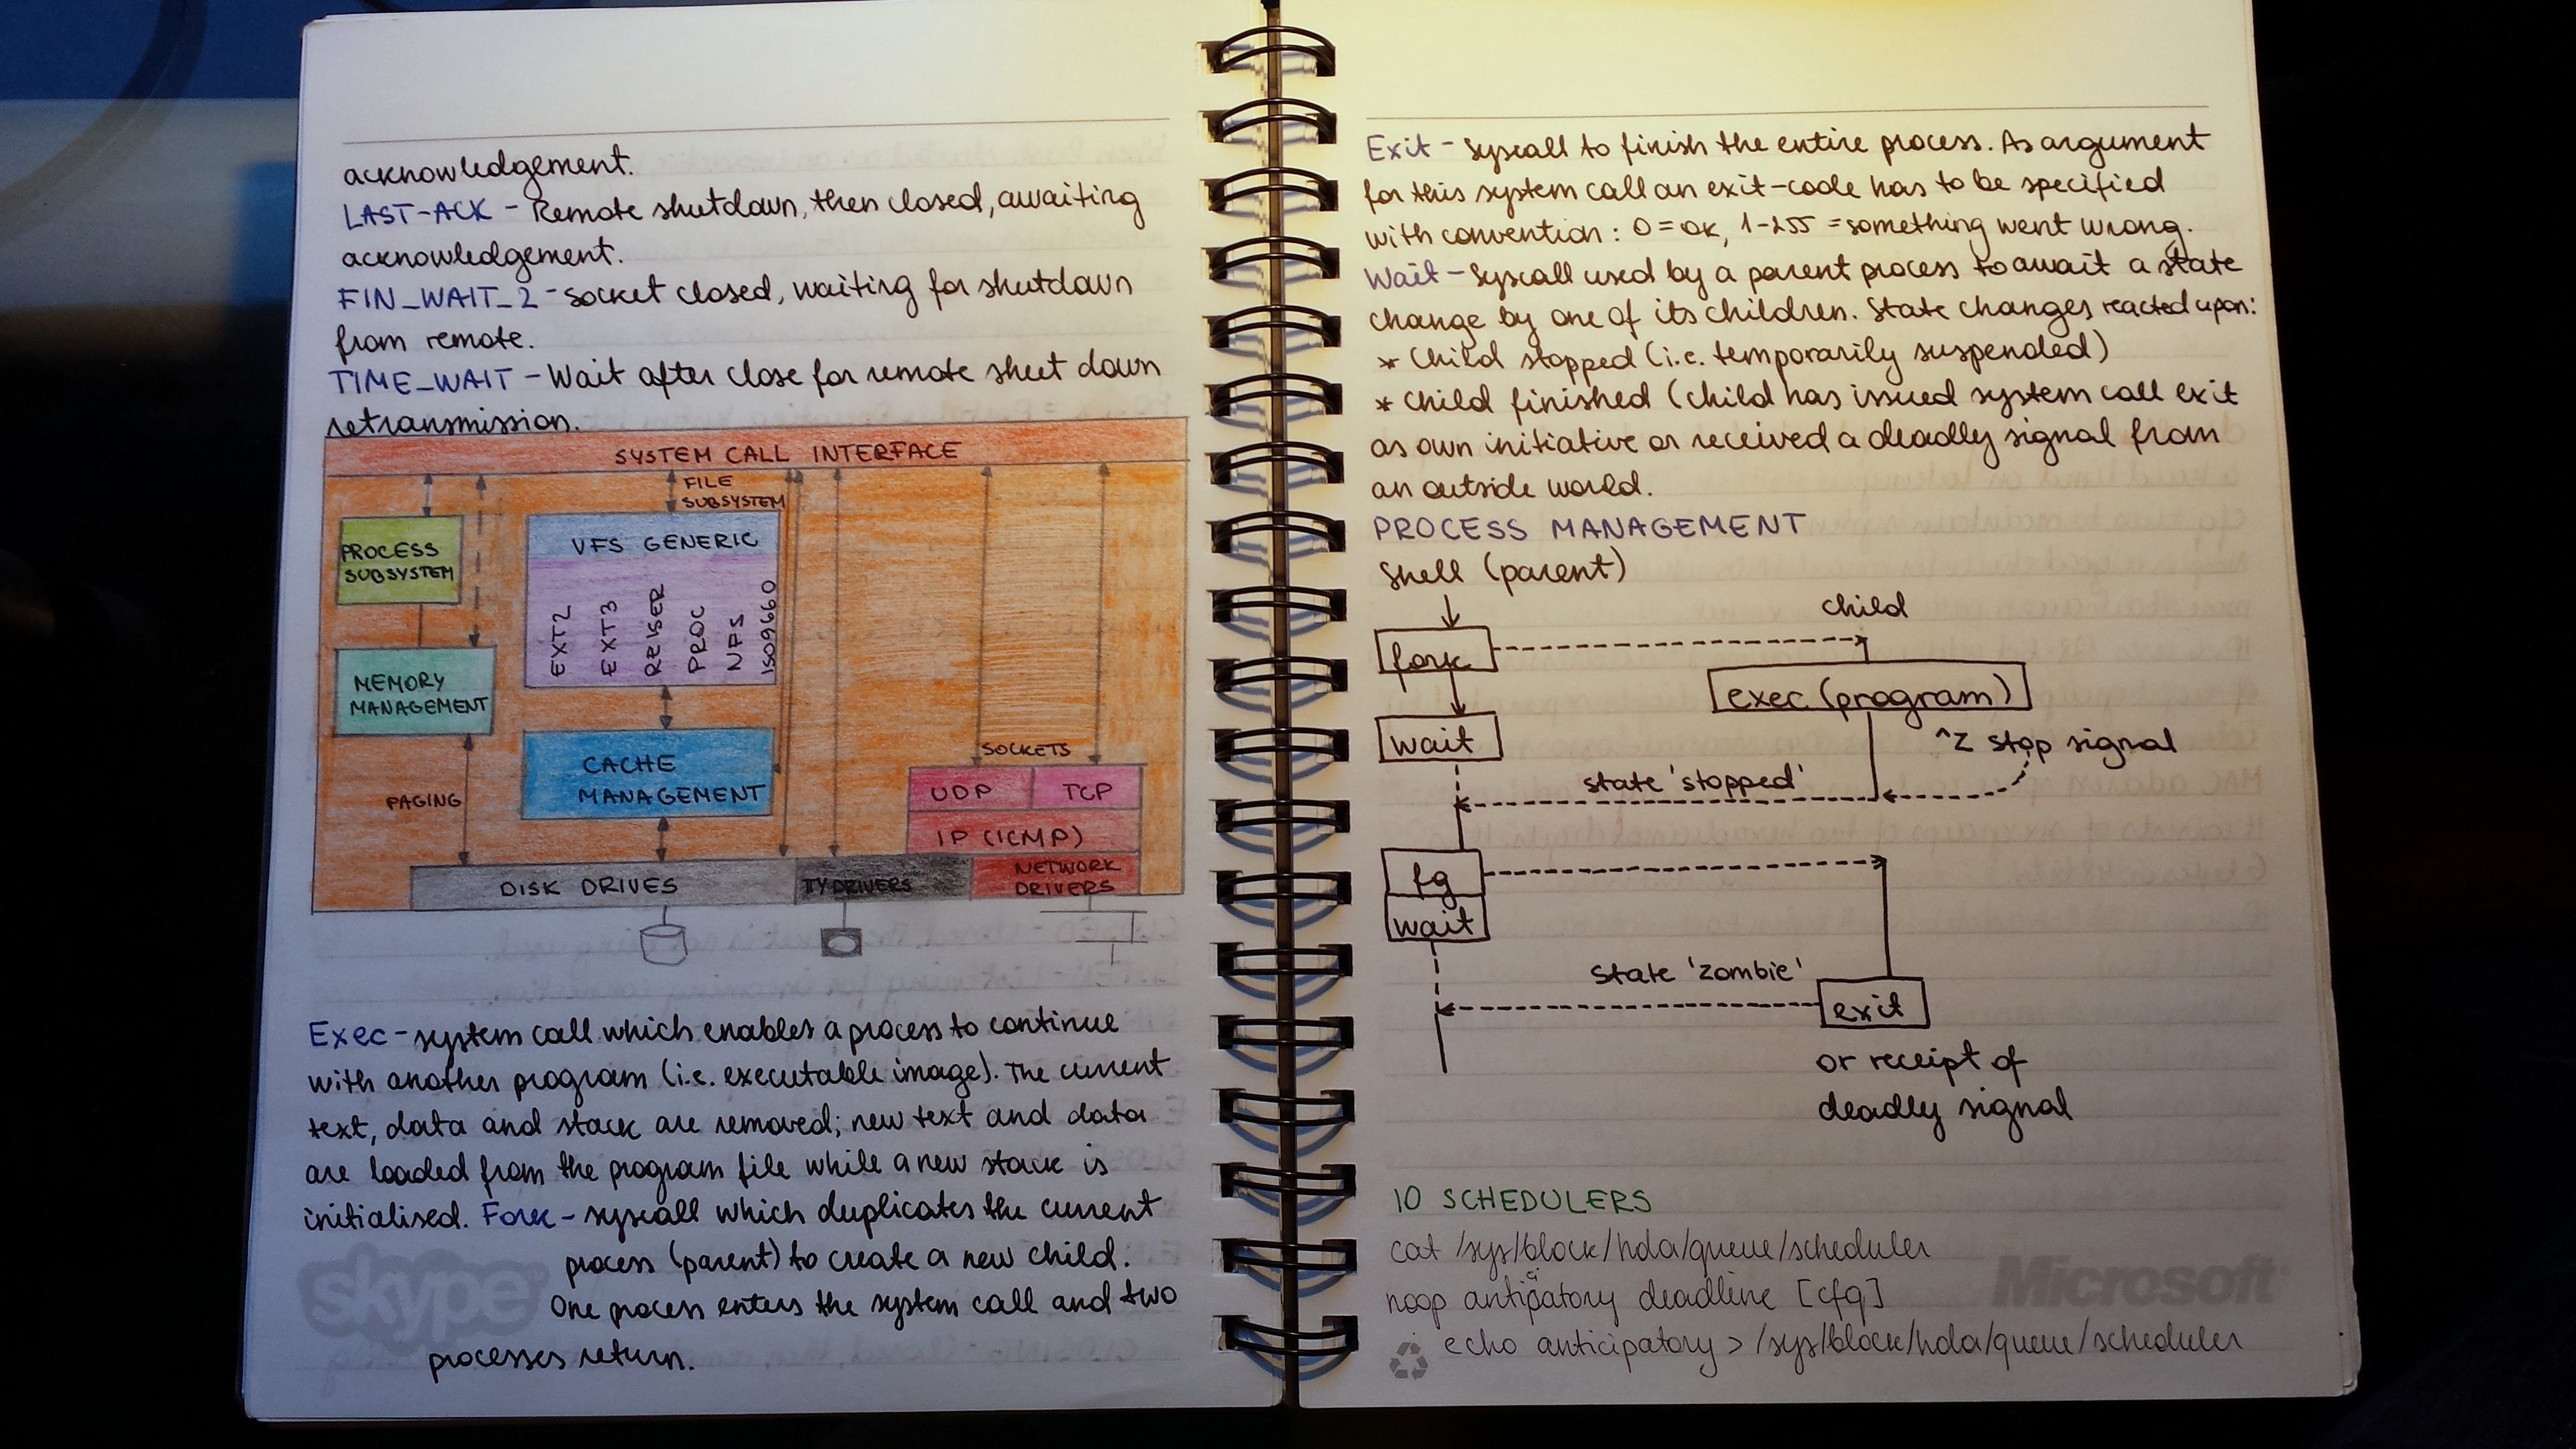 acknowledgement.
LAST-ACK - Remote shutdown, then closed, awaiting
acknowledgement.
FIN_WAIT_2 - Socket closed, waiting for shutdown
from remote.
TIME_WAIT - Wait after close for remote shut down
retransmission.
SYSTEM CALL INTERFACE
FILE
SUBSYSTEM
PROCESS
SUBSYSTEM
VFS GENERIC
EXT2
EXT3
REISER
PROC
NFS
ISO9660
MEMORY
MANAGEMENT
CACHE
MANAGEMENT
PAGING
SOCKETS
UDP
TCP
IP (ICMP)
DISK DRIVES
TTY DRIVERS
NETWORK
DRIVERS
Exec - system call which enables a process to continue
with another program (i.e. executable image). The current
text, data and stack are removed; new text and data
are loaded from the program file while a new stack is
initialised. Fork - syscall which duplicates the current
process (parent) to create a new child.
One process enters the system call and two
processes return.
skype
Exit - Syscall to finish the entire process. As argument
for this system call an exit-code has to be specified
with convention: 0 = ok, 1-255 = something went wrong.
Wait - Syscall used by a parent process to await a state
change by one of its children. State changes reacted upon:
* Child stopped (i.e. temporarily suspended)
* Child finished (child has issued system call exit
as own initiative or received a deadly signal from
an outside world.
PROCESS MANAGEMENT
Shell (parent)
child
fork
exec (program)
wait
^Z stop signal
state 'stopped'
fg
wait
state 'zombie'
exit
or receipt of
deadly signal
IO SCHEDULERS
cat /sys/block/hda/queue/scheduler
noop anticipatory deadline [cfq]
echo anticipatory > /sys/block/hda/queue/scheduler
Microsoft